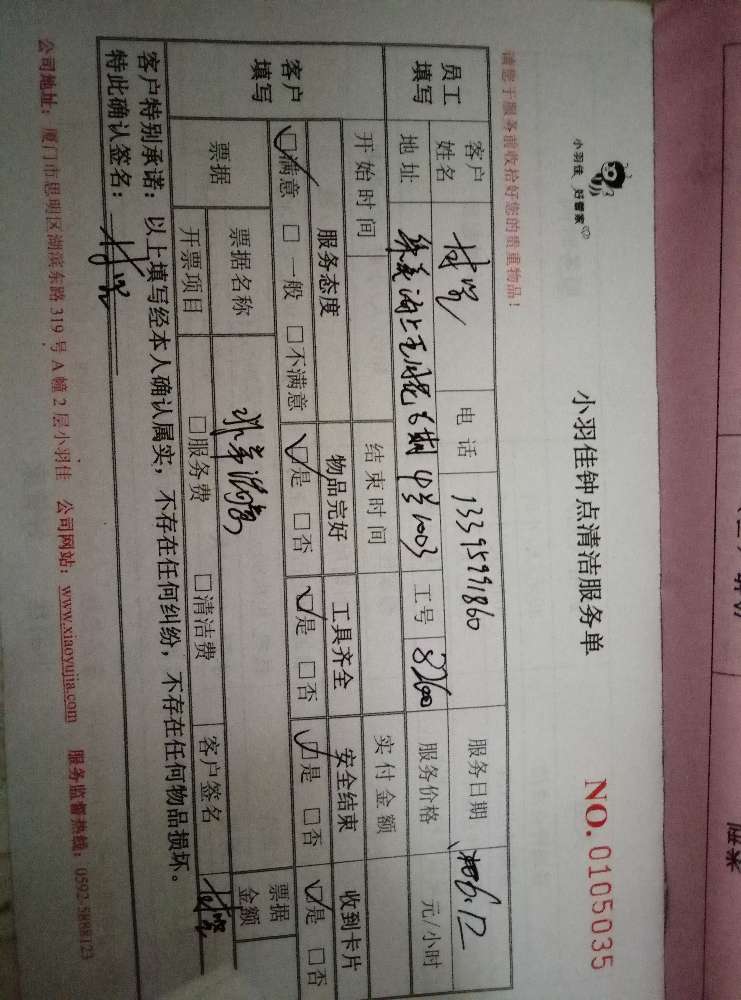 小羽佳 好管家
小羽佳钟点清洁服务单
NO. 0105035
请您于服务前收拾好您的贵重物品!
员工填写 客户姓名 电话 13395991860 服务日期
地址 工号 8260 服务价格 元/小时
客户填写 开始时间 结束时间 实付金额
服务态度 物品完好 工具齐全 安全结束 收到卡片
☑满意 □一般 □不满意 ☑是 □否 ☑是 □否 ☑是 □否 ☑是 □否
票据 票据名称 票据金额
开票项目 □服务费 □清洁费 客户签名
客户特别承诺:以上填写经本人确认属实,不存在任何纠纷,不存在任何物品损坏。
特此确认签名:
公司地址:厦门市思明区湖滨东路319号A幢2层小羽佳 公司网站:www.xiaoyujia.com 服务监督热线:0592-5888123